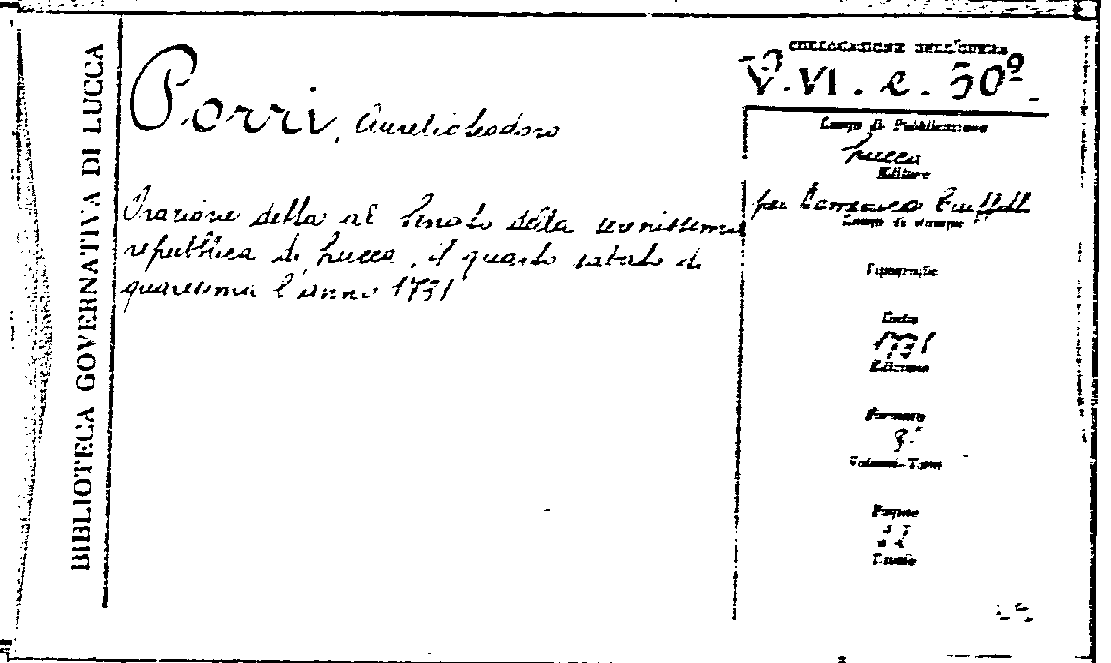 BIBLIOTECA GOVERNATIVA DI LUCCA
Porri, Aurelioteodoro
Orazione detta al Senato della serenissima
repubblica di Lucca, il quarto sabato di
quaresima l'anno 1731
COLLOCAZIONE DELL'OPERA
V. VI. e. 30º
Luogo di Pubblicazione
Lucca
Editore
per Domenico Ciuffetti
Luogo di stampa
Tipografia
Data
1731
Edizione
Formato
8º
Volumi-Tomi
Pagine
Tavole